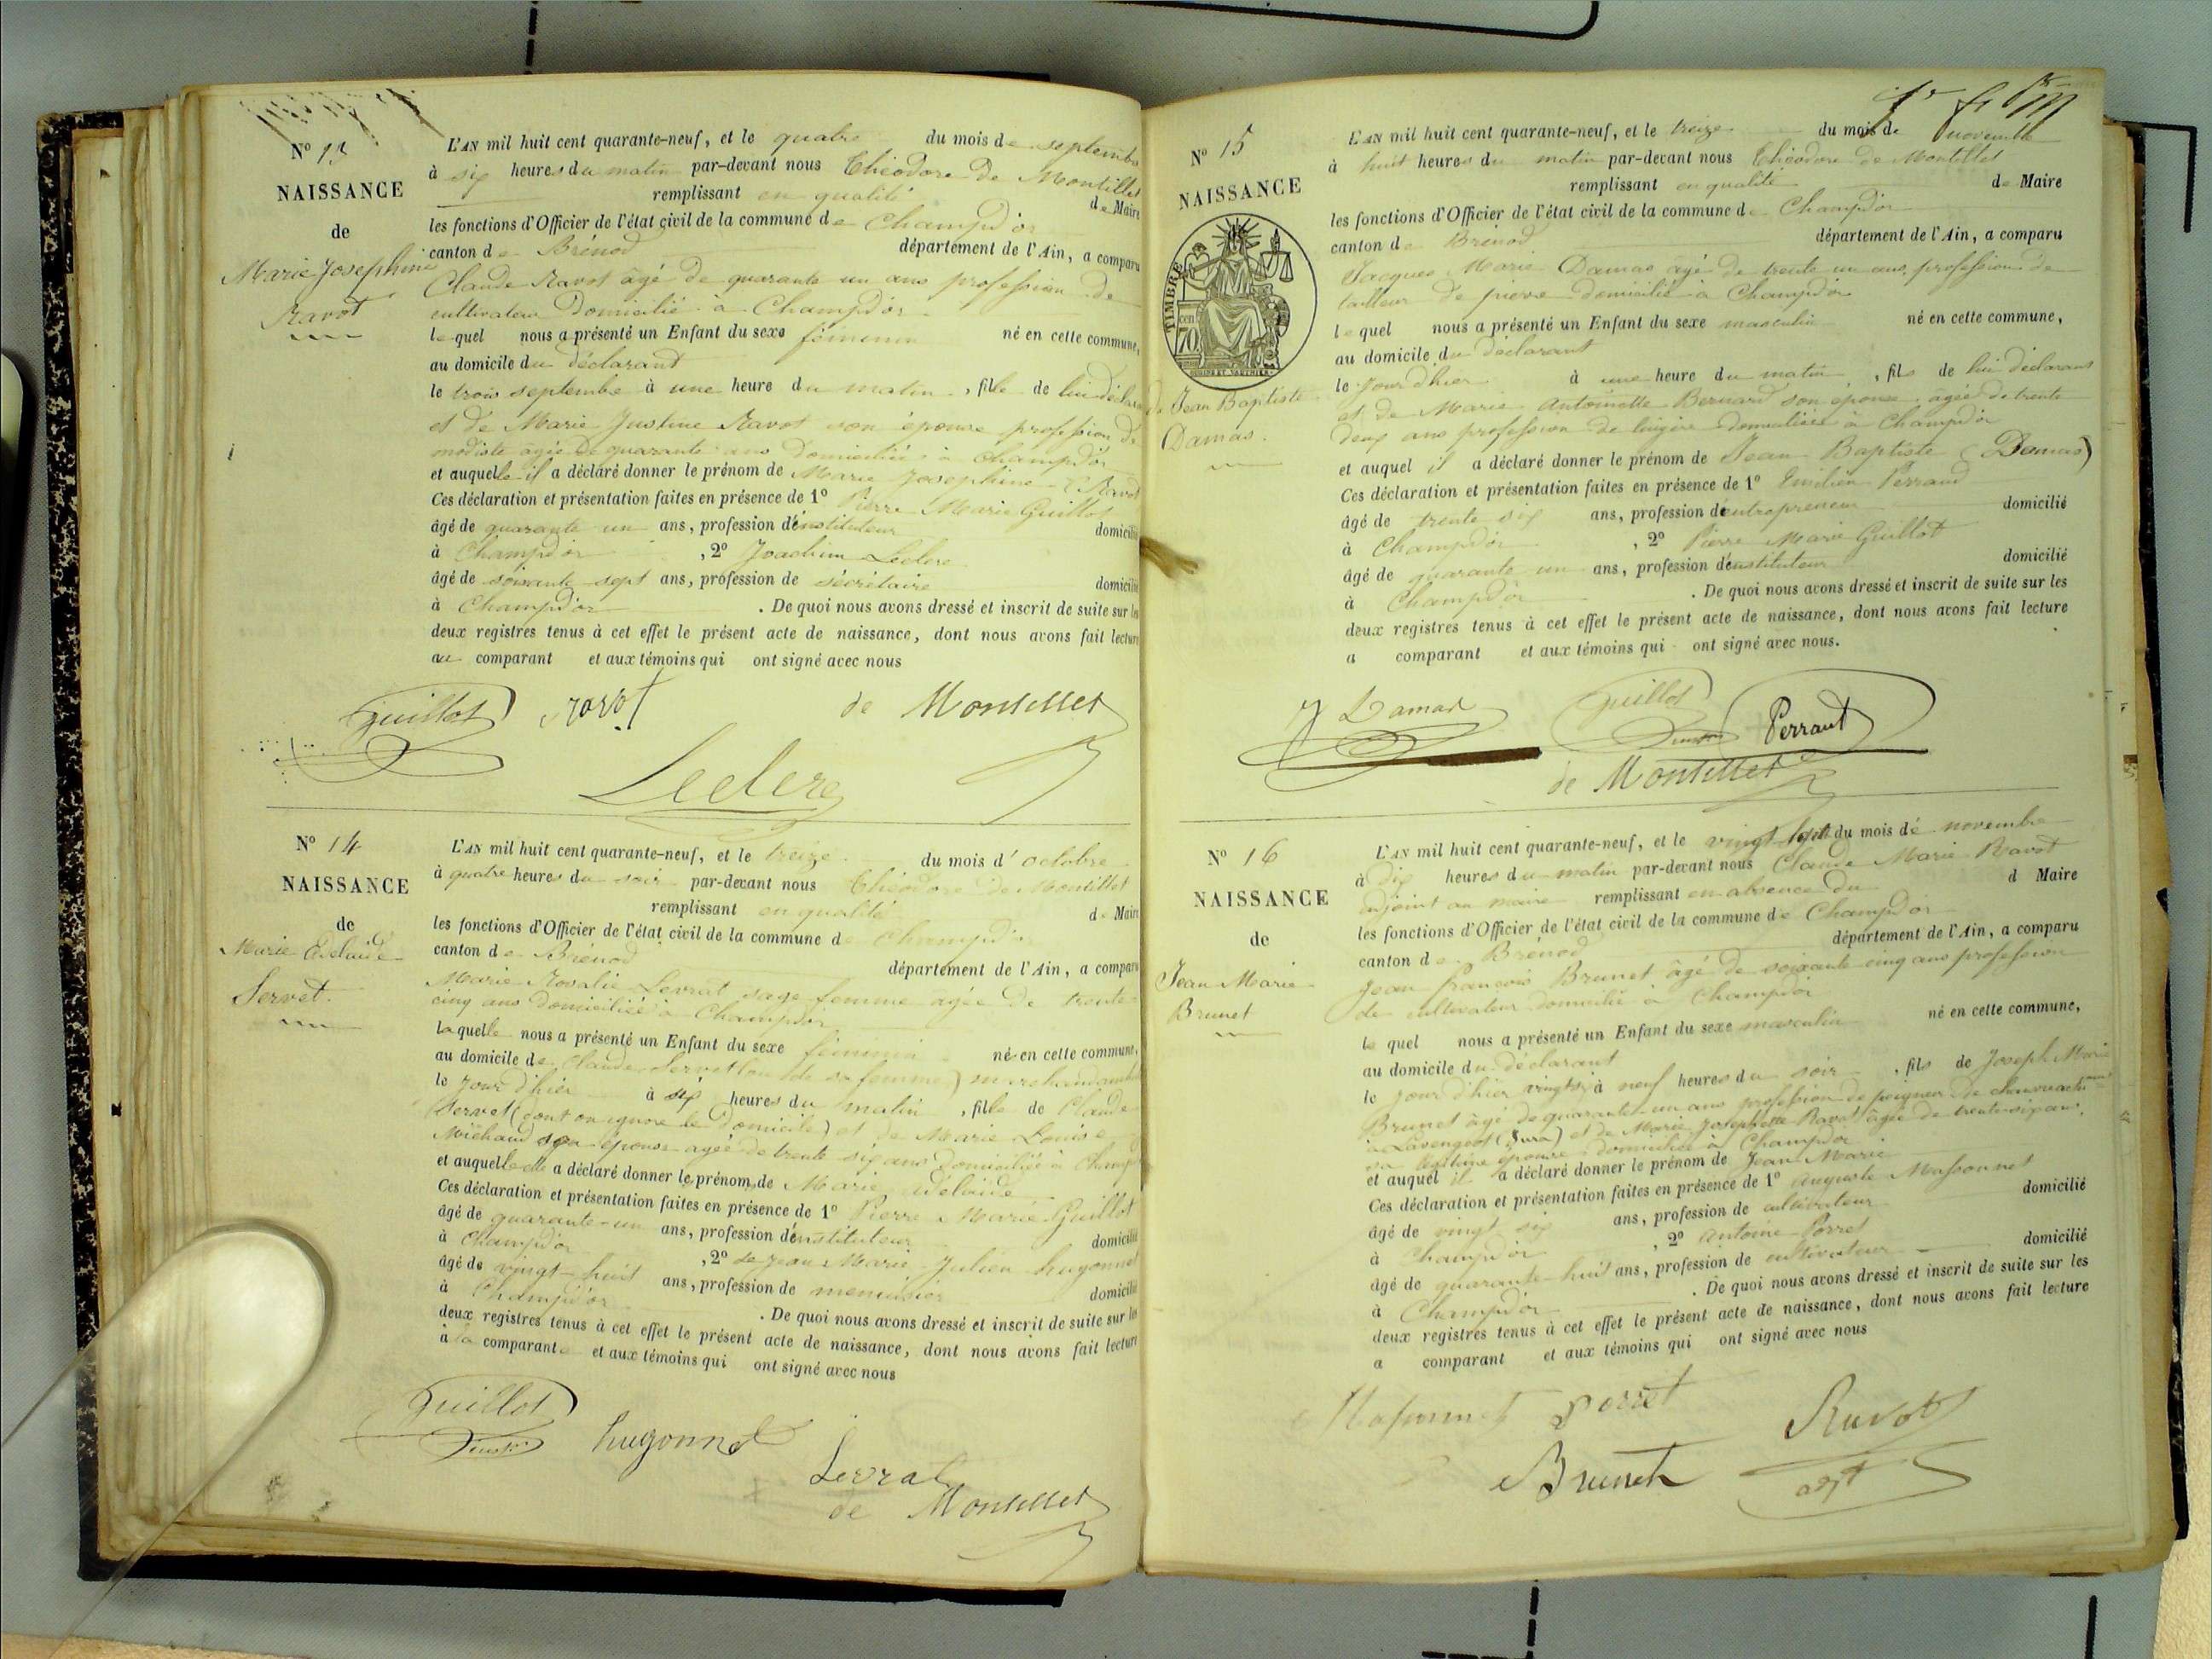 N° 13
NAISSANCE
de
Marie Josephine
Ravot
L'AN mil huit cent quarante-neuf, et le quatre du mois de septembre
à six heures du matin par-devant nous Théodore de Montillet
remplissant en qualité de Maire
les fonctions d'Officier de l'état civil de la commune de Champdor
canton de Brénod département de l'Ain, a comparu
Claude Ravot âgé de quarante un ans profession de
cultivateur Domicilié à Champdor
lequel nous a présenté un Enfant du sexe féminin né en cette commune,
au domicile du déclarant
le trois septembre à une heure du matin, fille de lui déclarant
et de Marie Justine Ravot son épouse profession de
modiste âgée de quarante ans Domiciliée à Champdor
et auquelle il a déclaré donner le prénom de Marie Josephine (Ravot
Ces déclaration et présentation faites en présence de 1° Pierre Marie Guillot
âgé de quarante un ans, profession d'instituteur domicilié
à Champdor, 2° Joachim Leclerc
âgé de soixante sept ans, profession de sécrétaire domicilié
à Champdor. De quoi nous avons dressé et inscrit de suite sur les
deux registres tenus à cet effet le présent acte de naissance, dont nous avons fait lecture
au comparant et aux témoins qui ont signé avec nous
Guillot Ravot de Montillet
Leclerc
N° 14
NAISSANCE
de
Marie Adelaide
Servet.
L'AN mil huit cent quarante-neuf, et le treize du mois d'octobre
à quatre heures du soir par-devant nous Théodore de Montillet
remplissant en qualité de Maire
les fonctions d'Officier de l'état civil de la commune de Champdor
canton de Brénod département de l'Ain, a comparu
Marie Rosalie Levrat sage femme agée de trente
cinq ans domiciliée à Champdor
laquelle nous a présenté un Enfant du sexe féminin né en cette commune,
au domicile de Claude Servet (ou de sa femme) marchand
le jour d'hier à six heures du matin, fille de Claude
Servet (dont on ignore le domicile) et de Marie Louise
Michaud son épouse agée de trente six ans domiciliée à Champ
et auquelle elle a déclaré donner le prénom de Marie Adelaide
Ces déclaration et présentation faites en présence de 1° Pierre Marie Guillot
âgé de quarante-un ans, profession d'instituteur domicilié
à Champdor, 2° de Jean Marie Julien hugonnet
âgé de vingt huit ans, profession de menuisier domicilié
à Champdor. De quoi nous avons dressé et inscrit de suite sur les
deux registres tenus à cet effet le présent acte de naissance, dont nous avons fait lecture
à la comparante et aux témoins qui ont signé avec nous
Guillot hugonnet
Levrat
de Montillet
N° 15
NAISSANCE
TIMBRE
cen
70
de Jean Baptiste
Damas.
L'AN mil huit cent quarante-neuf, et le treize du mois de novembre
à huit heures du matin par-devant nous Théodore de Montillet
remplissant en qualité de Maire
les fonctions d'Officier de l'état civil de la commune de Champdor
canton de Brénod département de l'Ain, a comparu
Jacques Marie Damas âgé de trente un ans, profession de
tailleur de pierre domicilié à Champdor
lequel nous a présenté un Enfant du sexe masculin né en cette commune,
au domicile du déclarant
le jour d'hier à une heure du matin, fils de lui déclarant
et de Marie Antoinette Bernard son épouse, agée de trente
deux ans profession de lingère domiciliée à Champdor
et auquel il a déclaré donner le prénom de Jean Baptiste (Damas)
Ces déclaration et présentation faites en présence de 1° Emilien Perraud
âgé de trente six ans, profession d'entrepreneur domicilié
à Champdor, 2° Pierre Marie Guillot
âgé de quarante un ans, profession d'instituteur domicilié
à Champdor. De quoi nous avons dressé et inscrit de suite sur les
deux registres tenus à cet effet le présent acte de naissance, dont nous avons fait lecture
a comparant et aux témoins qui ont signé avec nous.
J Damas Guillot Perraut
de Montillet
N° 16
NAISSANCE
de
Jean Marie
Brunet
L'AN mil huit cent quarante-neuf, et le vingt sept du mois de novembre
à dix heures du matin par-devant nous Claude Marie Ravot
adjoint au maire remplissant en absence du d Maire
les fonctions d'Officier de l'état civil de la commune de Champdor
canton de Brénod département de l'Ain, a comparu
Jean françois Brunet âgé de soixante cinq ans profession
de cultivateur domicilié à Champdor
lequel nous a présenté un Enfant du sexe masculin né en cette commune,
au domicile du déclarant
le jour d'hier vingt six à neuf heures du soir, fils de Joseph Marie
Brunet âgé de quarante-un ans profession de peigneur de chanvre
à (Jura) et de Marie Josephette Ravot âgée de trente-six ans,
sa légitime épouse domiciliée à Champdor
et auquel il a déclaré donner le prénom de Jean Marie
Ces déclaration et présentation faites en présence de 1° auguste Massonnet
âgé de vingt six ans, profession de cultivateur domicilié
à Champdor, 2° antoine Porret
âgé de quarante-huit ans, profession de cultivateur domicilié
à Champdor. De quoi nous avons dressé et inscrit de suite sur les
deux registres tenus à cet effet le présent acte de naissance, dont nous avons fait lecture
a comparant et aux témoins qui ont signé avec nous
Massonnet Porret Ravot
Brunet adjt